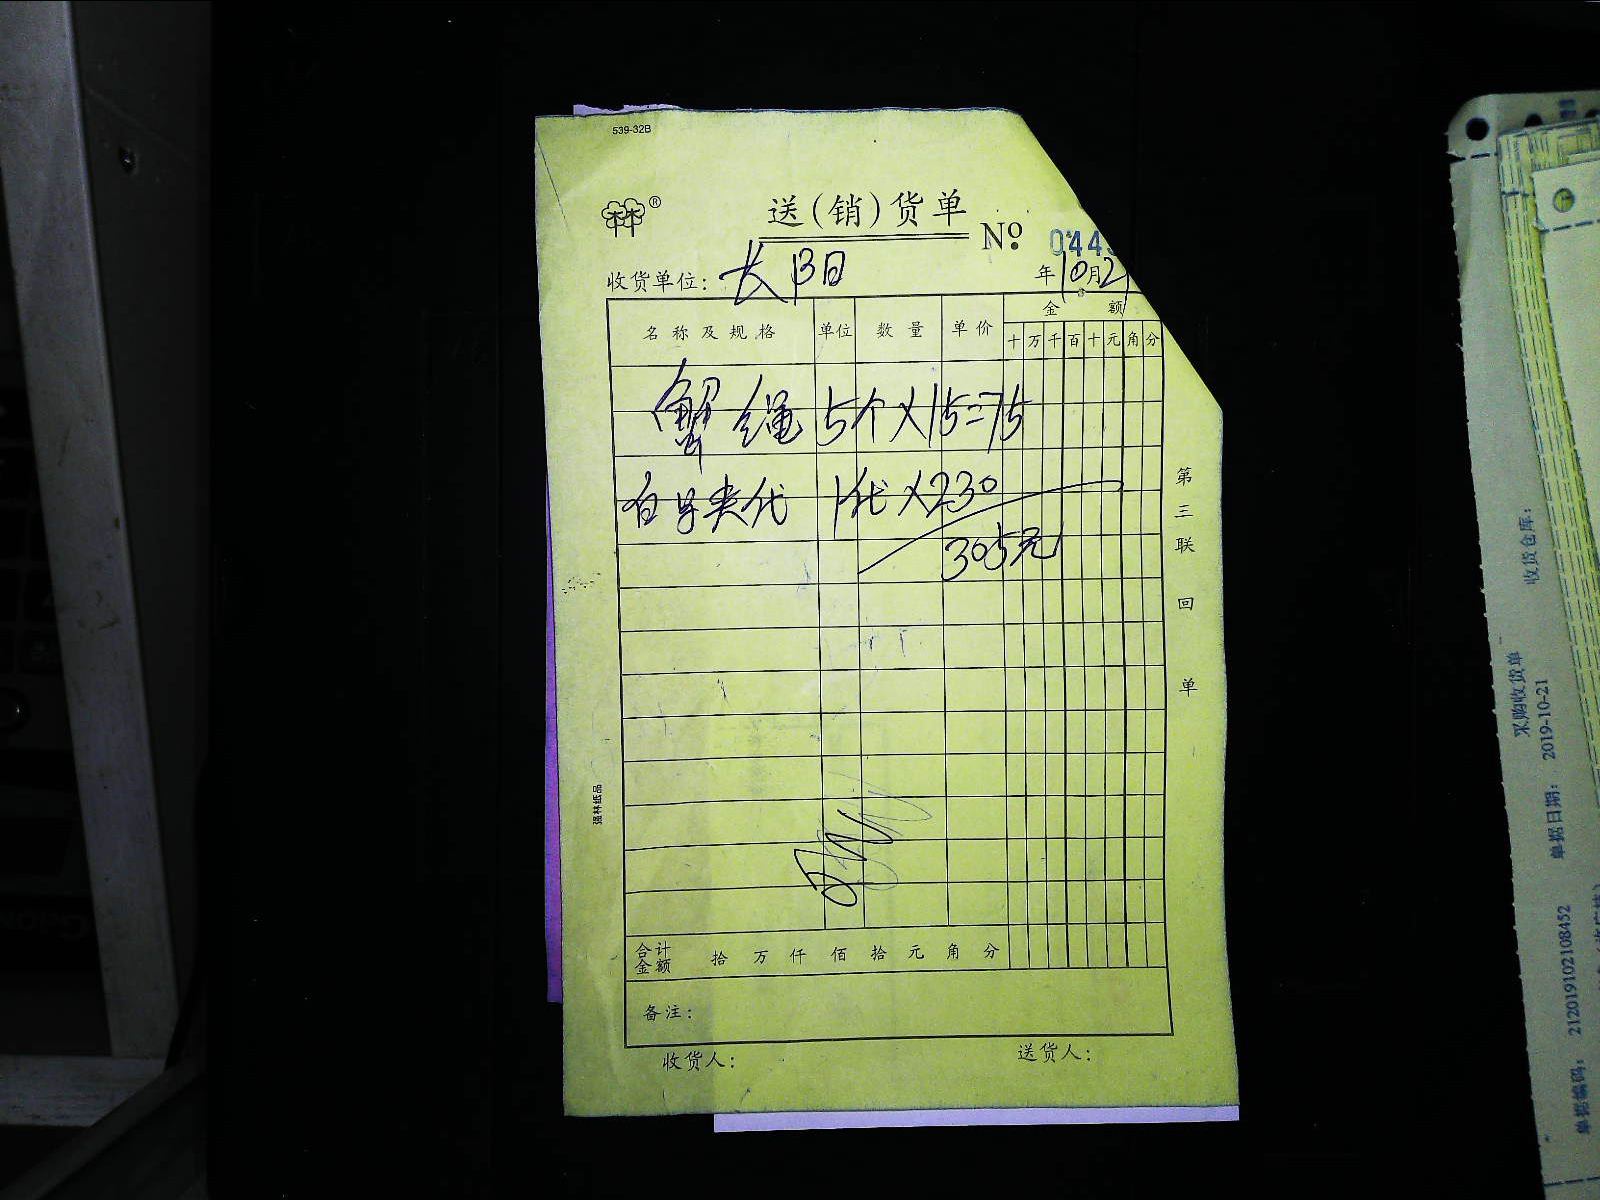 539-32B
®
送(销)货单
No. 044
收货单位: 长阝日 年10月21
金 额
名称及规格 单位 数量 单价 十 万 千 百 十 元 角 分
蟹绳 5个×15=75
白号夹代 1代×230
305元
第三联 回单
强林纸品
合计金额 拾 万 仟 佰 拾 元 角 分
备注:
收货人: 送货人:
收货仓库:
采购收货单
单据日期: 2019-10-21
单据编码: 2120191021084 52